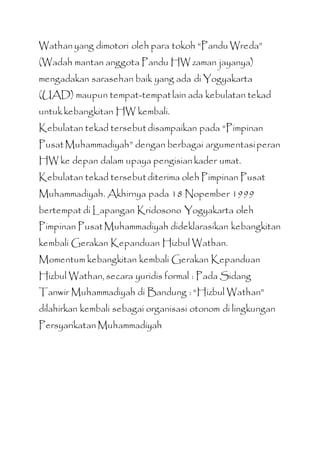 Wathan yang dimotori oleh para tokoh "Pandu Wreda"
(Wadah mantan anggota Pandu HW zaman jayanya)
mengadakan sarasehan baik yang ada di Yogyakarta
(UAD) maupun tempat-tempat lain ada kebulatan tekad
untuk kebangkitan HW kembali.
Kebulatan tekad tersebut disampaikan pada "Pimpinan
Pusat Muhammadiyah" dengan berbagai argumentasi peran
HW ke depan dalam upaya pengisian kader umat.
Kebulatan tekad tersebut diterima oleh Pimpinan Pusat
Muhammadiyah. Akhirnya pada 18 Nopember 1999
bertempat di Lapangan Kridosono Yogyakarta oleh
Pimpinan Pusat Muhammadiyah dideklarasikan kebangkitan
kembali Gerakan Kepanduan Hizbul Wathan.
Momentum kebangkitan kembali Gerakan Kepanduan
Hizbul Wathan, secara yuridis formal : Pada Sidang
Tanwir Muhammadiyah di Bandung : "Hizbul Wathan"
dilahirkan kembali sebagai organisasi otonom di lingkungan
Persyarikatan Muhammadiyah